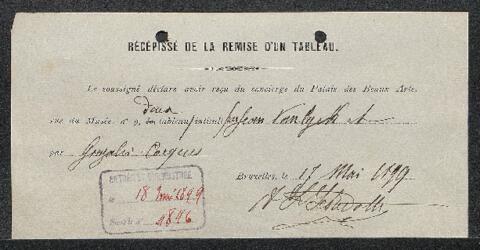 RÉCÉPISSÉ DE LA REMISE D'UN TABLEAU.
Le soussigné déclare avoir reçu du concierge du Palais des Beaux Arts,
deux
rue du Musée n° 9, un tableau intitulé par Jean Van Eyck et
par Gonzalès Coques
Bruxelles, le 17 Mai 1899
le 18 1899
N° 4846